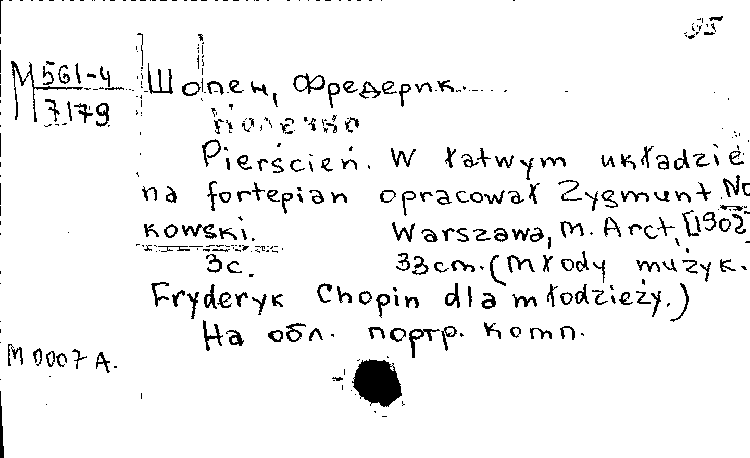 95
M 561-4
7179
Шопен, Фредерик.
Колечко
Pierścień. W łatwym układzie
na fortepian opracował Zygmunt No
kowski. Warszawa, M. Arct, [1902]
3с. 33cm. (Młody mużyk.
Fryderyk Chopin dla młodzieży.)
На обл. портр. комп.
M 0007 A.